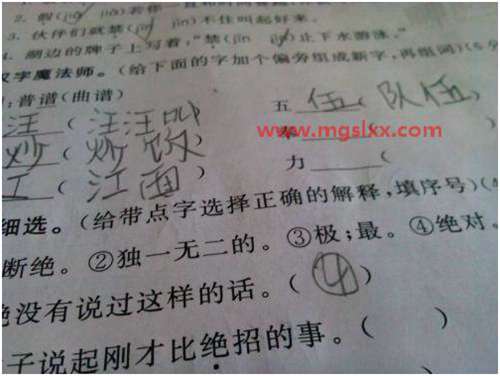 3. 伙伴们就禁(jīn jìn)不住叫起好来。
4. 湖边的牌子上写着,“禁(jīn jìn)止下水游泳。”
汉字魔法师。(给下面的字加个偏旁组成新字,再组词)(6分
:普谱(曲谱)
五 伍 ( 队伍
汪 ( 汪汪叫
www.mgslxx.com
炒 ( 炒饭 )
力 (
江 ( 江面 )
细选。(给带点字选择正确的解释,填序号)(4
断绝。②独一无二的。③极;最。④绝对。
绝没有说过这样的话。( ④ )
子说起刚才比绝招的事。( )